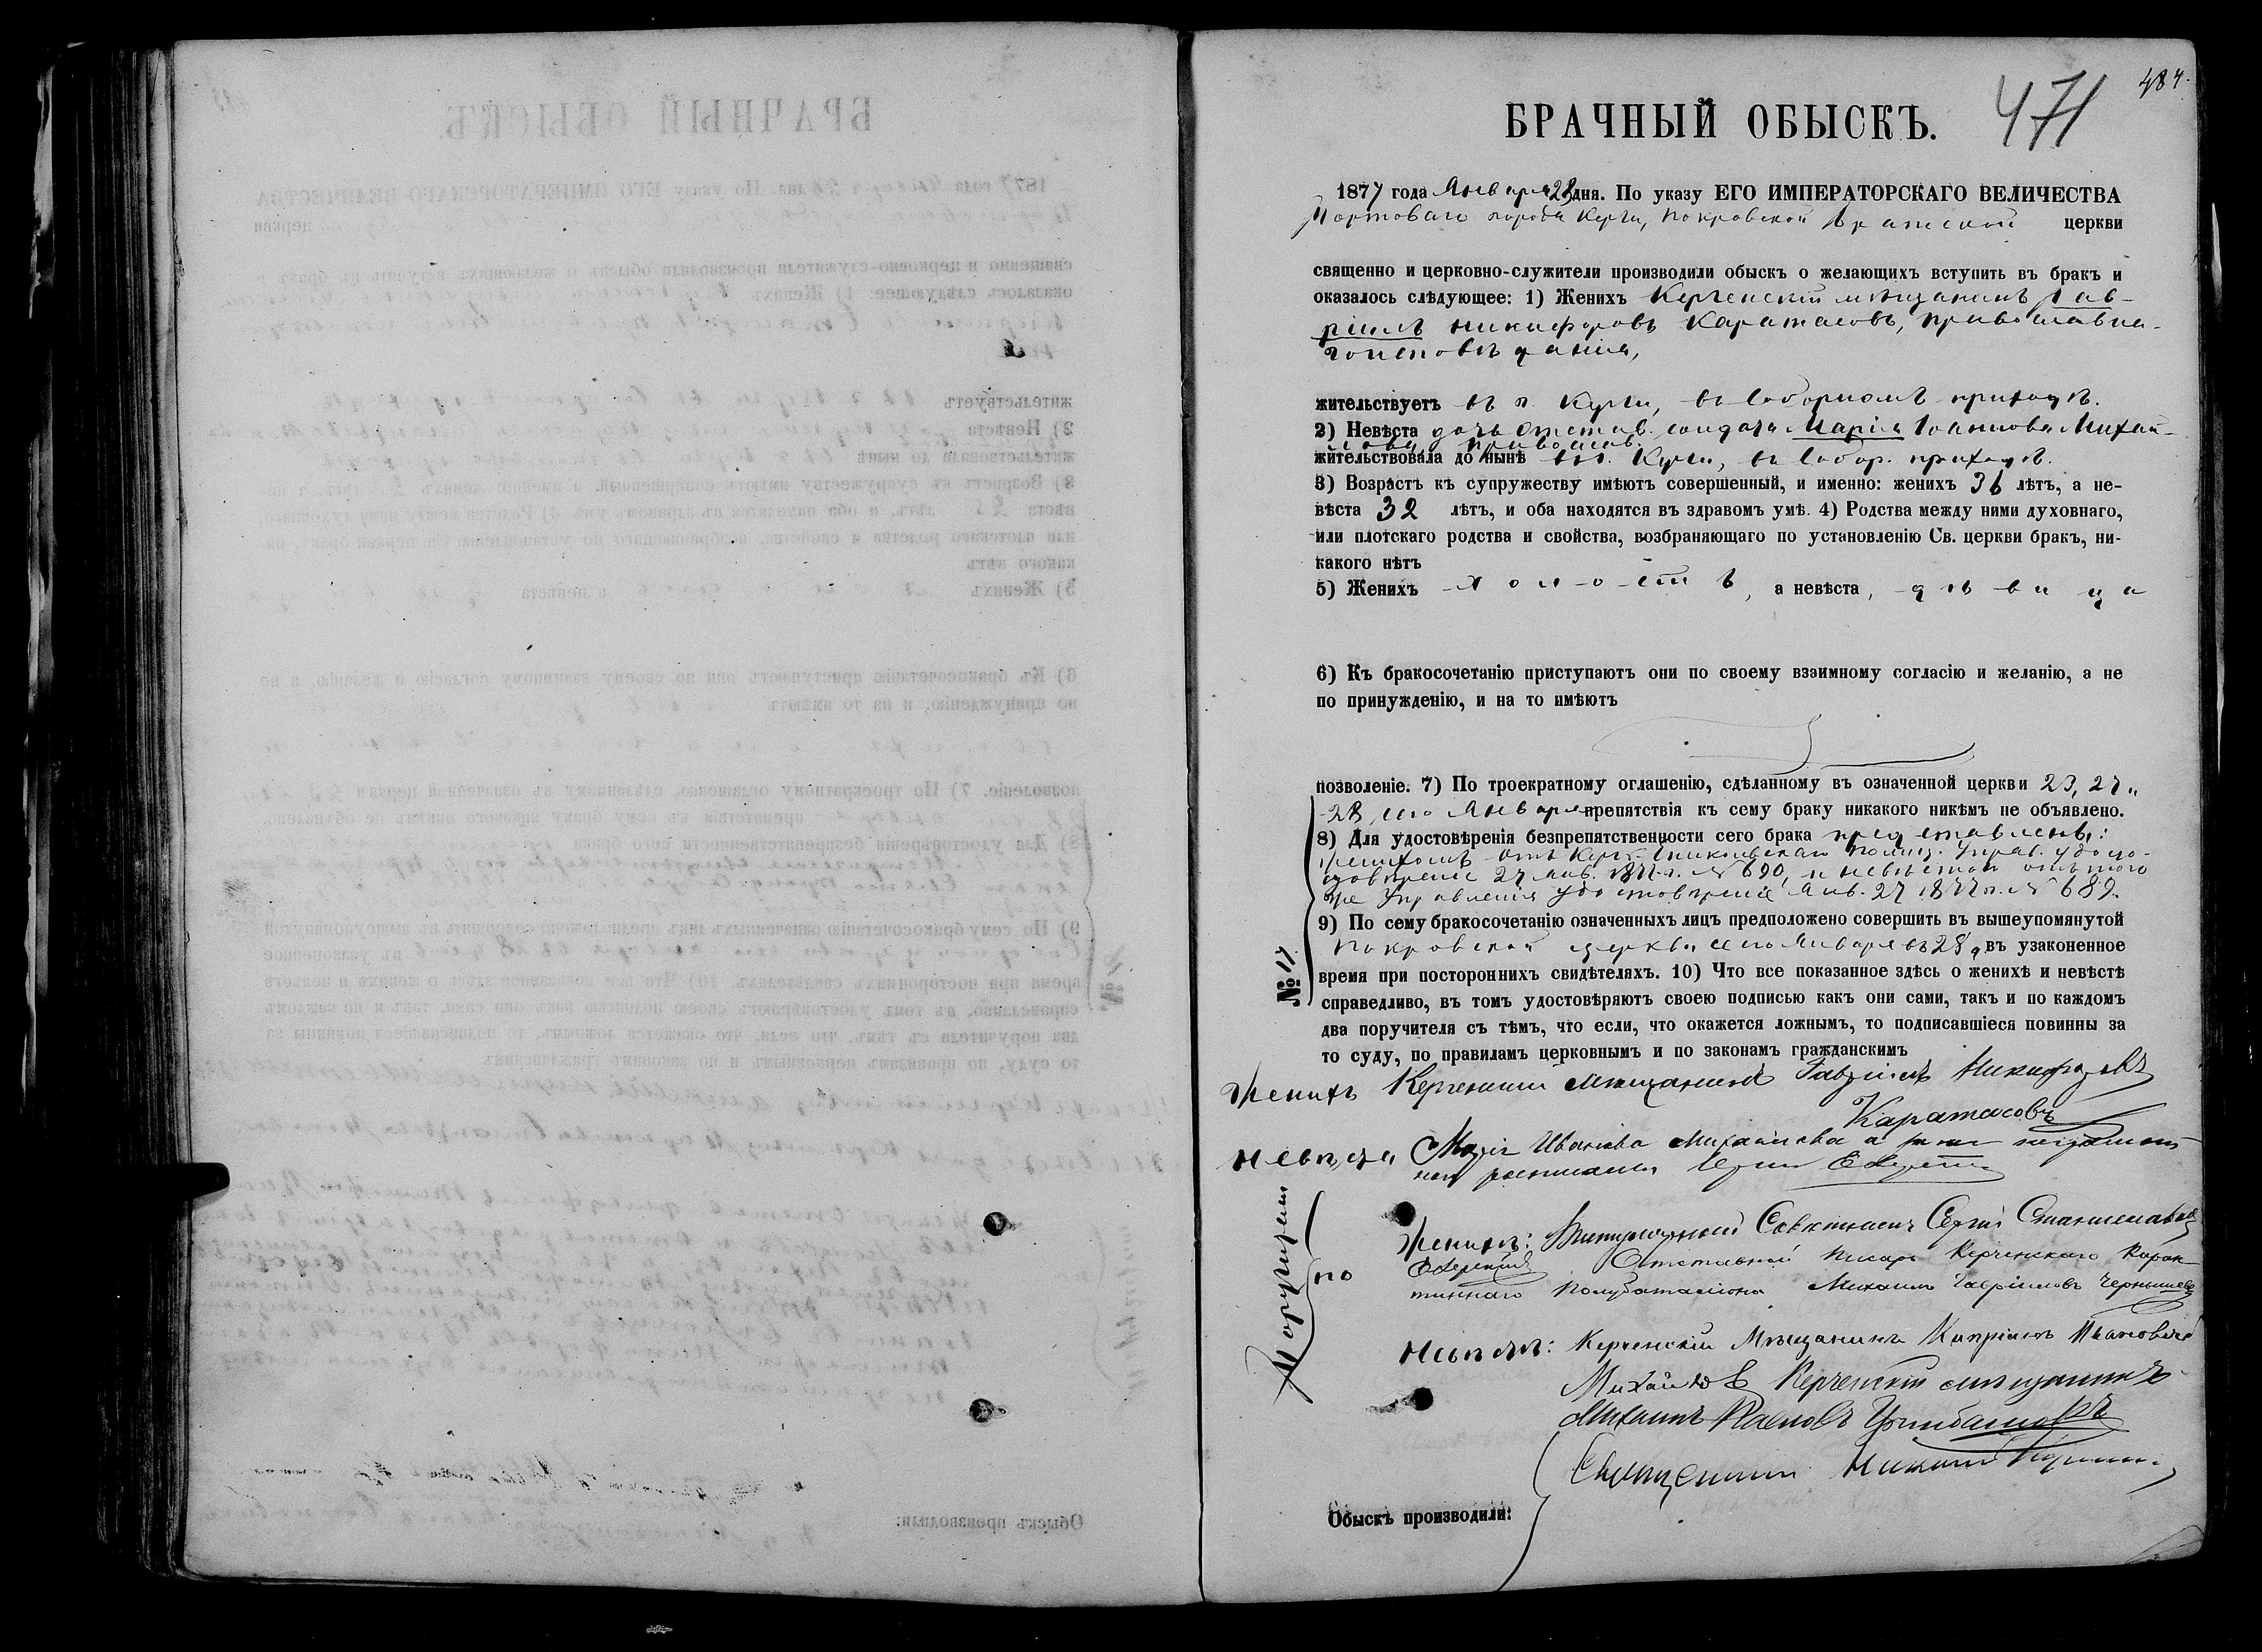 484.
БРАЧНЫЙ ОБЫСКЪ. 471
1877 года Января 28 дня. По указу ЕГО ИМПЕРАТОРСКАГО ВЕЛИЧЕСТВА
Портоваго города Керчи, Покровской церкви
священно и церковно-служители производили обыскъ о желающихъ вступить въ бракъ и
оказалось слѣдующее: 1) Женихъ Керченскій мѣщанинъ Гав-
ріилъ Никифоровъ Каратасовъ, православна-
го исповѣданія,
жительствуетъ въ г. Керчи, въ Соборномъ приходѣ.
2) Невѣста дочь отстав. солдата Марія Іоаннова Михай-
лова, православ.
жительствовала до нынѣ въ г. Керчи, въ Собор. приходѣ.
3) Возрастъ къ супружеству имѣютъ совершенный, и именно: женихъ 36 лѣтъ, а не-
вѣста 32 лѣтъ, и оба находятся въ здравомъ умѣ. 4) Родства между ними духовнаго,
или плотскаго родства и свойства, возбраняющаго по установленію Св. церкви бракъ, ни-
какого нѣтъ
5) Женихъ холостъ, а невѣста, дѣвица
6) Къ бракосочетанію приступаютъ они по своему взаимному согласію и желанію, а не
по принужденію, и на то имѣютъ
позволеніе. 7) По троекратному оглашенію, сдѣланному въ означенной церкви 23, 27 „
28 сего Января препятствія къ сему браку никакого никѣмъ не объявлено.
8) Для удостовѣренія безпрепятственности сего брака представлены:
женихомъ отъ Керч. Полиц. Управ. удосто-
вѣреніе 27 янв. 1877 г. № 690, и невѣстой отъ того
же Управленія удостовѣреніе Янв. 27 1877 г. № 689.
9) По сему бракосочетанію означенныхъ лицъ предположено совершить въ вышеупомянутой
Покровской церкви сего Января въ 28 д въ узаконенное
№ 17
время при постороннихъ свидѣтеляхъ. 10) Что все показанное здѣсь о женихѣ и невѣстѣ
справедливо, въ томъ удостовѣряютъ своею подписью какъ они сами, такъ и по каждомъ
два поручителя съ тѣмъ, что если, что окажется ложнымъ, то подписавшіеся повинны за
то суду, по правиламъ церковнымъ и по законамъ гражданскимъ
Женихъ Керченскій мѣщанинъ Гавріилъ Никифоровъ
Каратасовъ
Невѣста Марія Иванова Михайлова а
Поручители по
Женихѣ: Сергій
Отставной писарь Керченскаго Каран-
тиннаго Полубаталіона Михаилъ Гавріиловъ Чернышевъ
Невѣстѣ: Керченскій Мѣщанинъ Кипріанъ Ивановичъ
Михайловъ Керченскій мѣщанинъ
Михаилъ Павловъ
Священникъ
Обыскъ производили: